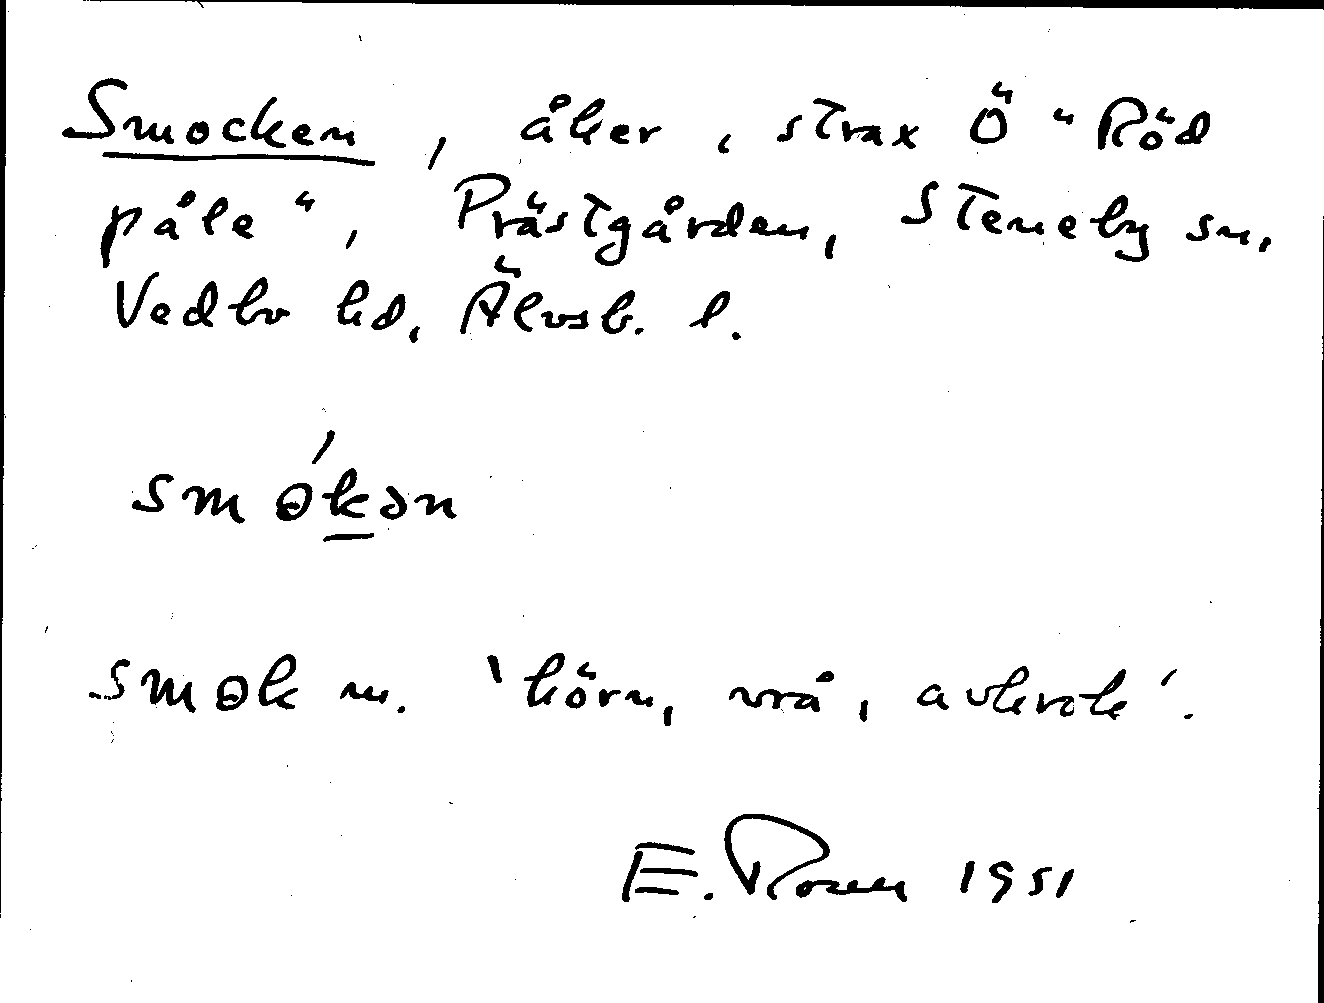 Smocken, åker, strax Ö "Röd
påle", Prästgården, Steneby sn,
Vedbo hd, Älvsb. l.
smɵ́kən
smɵk m. 'hörn, vrå, avkrok'.
E. Rosen 1951